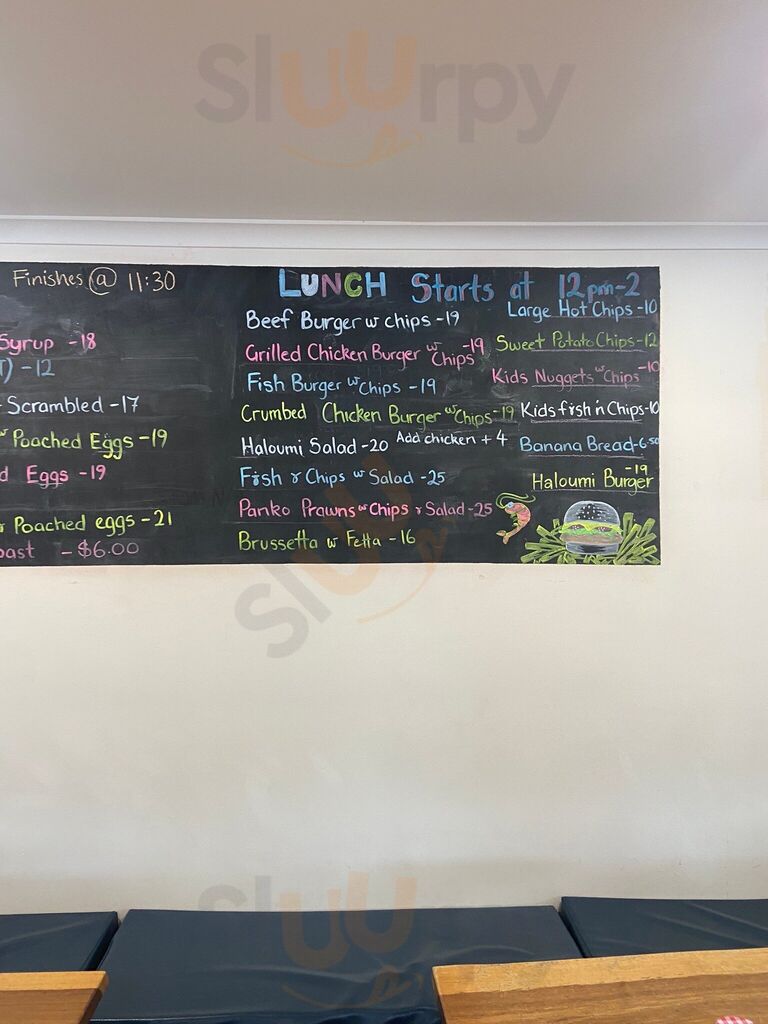 Sluurpy
Finishes @ 11:30
Syrup - 18
T) - 12
- Scrambled - 17
w Poached Eggs - 19
d Eggs - 19
Poached eggs - 21
oast - $6.00
LUNCH Starts at 12pm-2
Beef Burger w chips - 19
Grilled Chicken Burger w Chips - 19
Fish Burger w Chips - 19
Crumbed Chicken Burger w Chips - 19
Haloumi Salad - 20 Add chicken + 4
Fish & Chips w Salad - 25
Panko Prawns w Chips & Salad - 25
Brussetta w Fetta - 16
Large Hot Chips - 10
Sweet Potato Chips - 12
Kids Nuggets w Chips - 10
Kids fish n Chips - 10
Banana Bread - 6.50
Haloumi Burger - 19
Sluurpy
Sluurpy